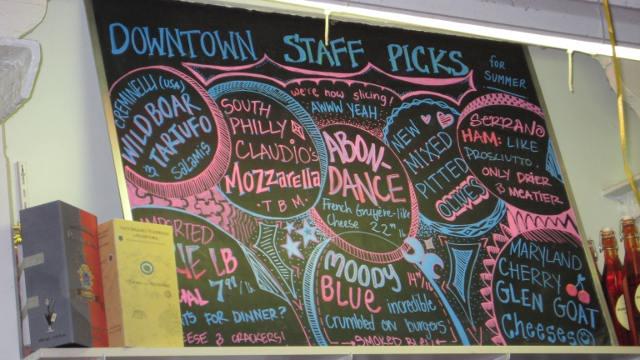 DOWNTOWN STAFF PICKS
for
SUMMER
CREMINELLI (USA)
WILD BOAR
TARTUFO
Salamis
SOUTH
PHILLY
CLAUDIO'S
MOZZARELLA
TBM
we're now slicing!
AWWW YEAH
ABON-
DANCE
French Gruyère-like
Cheese 22
NEW
MIXED
PITTED
OLIVES
SERRANO
HAM: LIKE
PROSCIUTTO,
ONLY DRIER
& MEATIER
IMPORTED
LB
7
FOR DINNER?
& CRACKERS!
MOODY
BLUE
incredible
crumbled on burgers
SMOKED BLEU
MARYLAND
CHERRY
GLEN GOAT
Cheeses